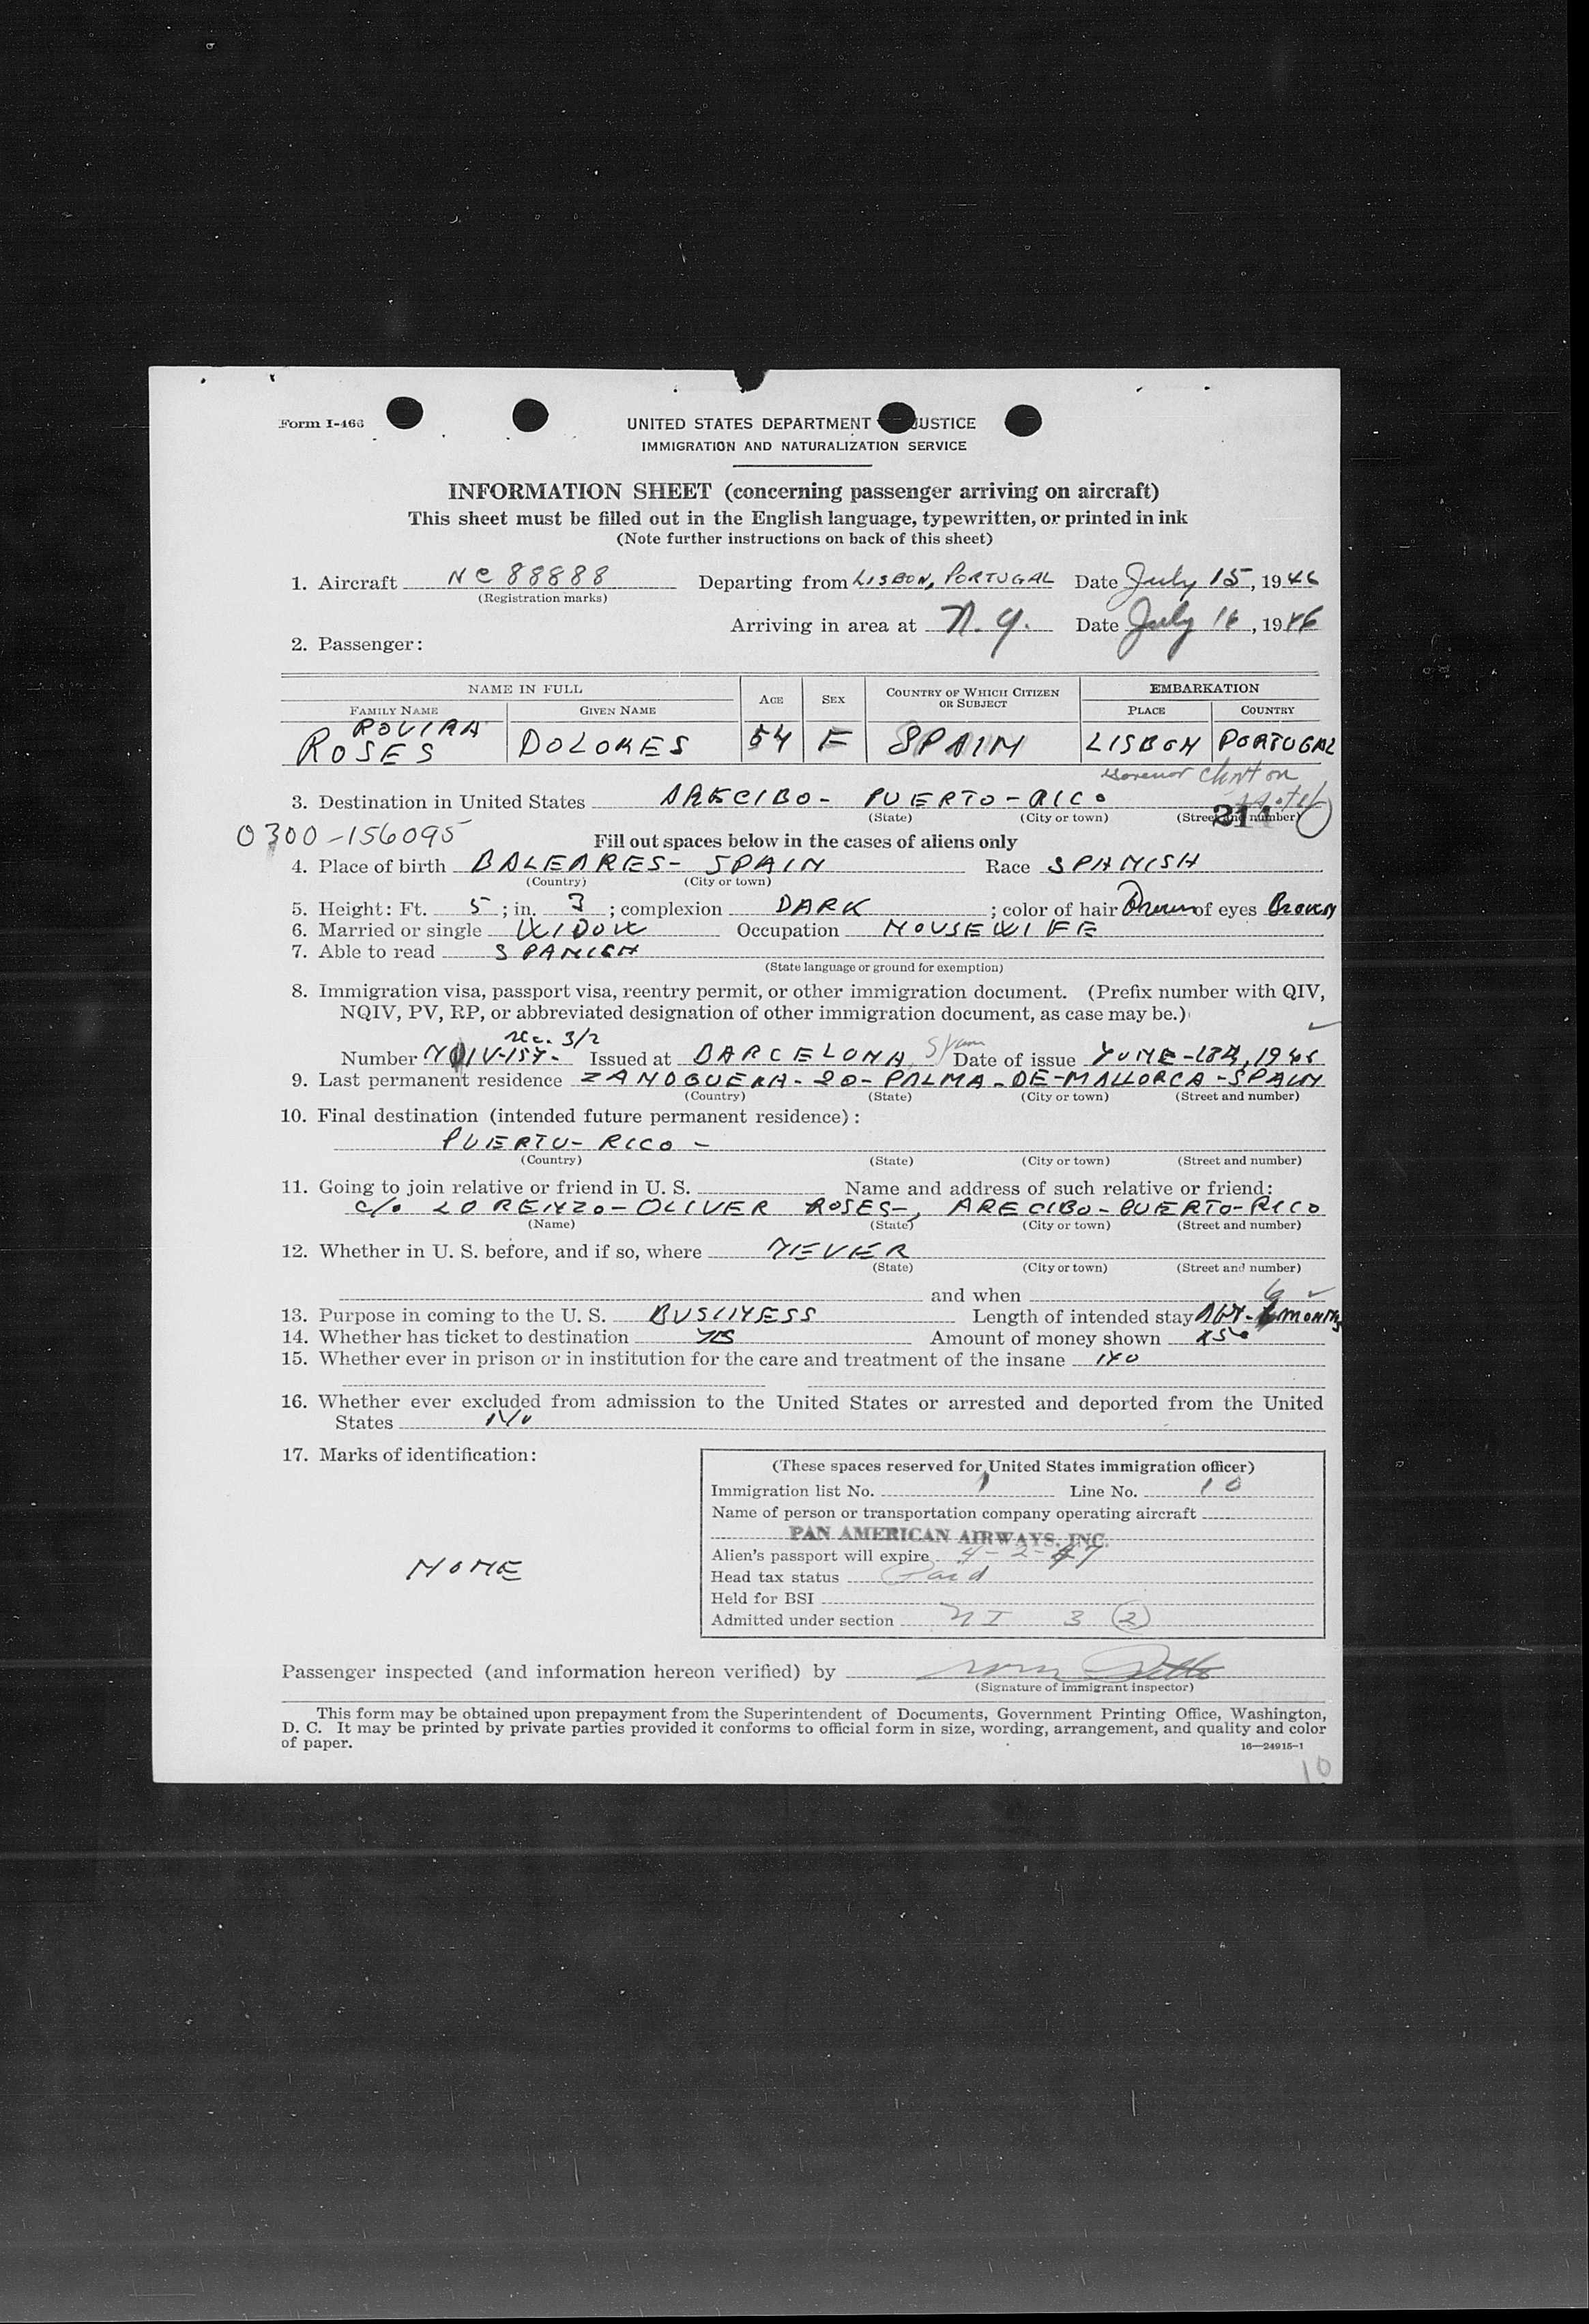 Form I-466
UNITED STATES DEPARTMENT JUSTICE
IMMIGRATION AND NATURALIZATION SERVICE
INFORMATION SHEET (concerning passenger arriving on aircraft)
This sheet must be filled out in the English language, typewritten, or printed in ink
(Note further instructions on back of this sheet)
1. Aircraft NC 88888 Departing from LISBON, PORTUGAL Date July 15, 1946
(Registration marks)
Arriving in area at N.Y. Date July 16, 1946
2. Passenger:
NAME IN FULL AGE SEX COUNTRY OF WHICH CITIZEN OR SUBJECT EMBARKATION
FAMILY NAME GIVEN NAME PLACE COUNTRY
ROVIRA
ROSES DOLORES 54 F SPAIN LISBON PORTUGAL
Governor Clinton
Hotel
3. Destination in United States ARECIBO - PUERTO - RICO
(State) (City or town) (Street and number)
211
0300-156095 Fill out spaces below in the cases of aliens only
4. Place of birth BALEARES - SPAIN Race SPANISH
(Country) (City or town)
5. Height: Ft. 5; in. 3; complexion DARK; color of hair Brown of eyes Brown
6. Married or single WIDOW Occupation HOUSEWIFE
7. Able to read SPANISH
(State language or ground for exemption)
8. Immigration visa, passport visa, reentry permit, or other immigration document. (Prefix number with QIV,
NQIV, PV, RP, or abbreviated designation of other immigration document, as case may be.)
Sec. 3/2
Number NQIV-154- Issued at BARCELONA Spain Date of issue 1946
9. Last permanent residence ZANOGUERA - 20 - PALMA - DE - MALLORCA - SPAIN
(Country) (State) (City or town) (Street and number)
10. Final destination (intended future permanent residence):
PUERTO - RICO -
(Country) (State) (City or town) (Street and number)
11. Going to join relative or friend in U. S. Name and address of such relative or friend:
c/o LORENZO - OLIVER ROSES -, ARECIBO - PUERTO - RICO
(Name) (State) (City or town) (Street and number)
12. Whether in U. S. before, and if so, where NEVER
(State) (City or town) (Street and number)
and when
13. Purpose in coming to the U. S. BUSINESS Length of intended stay 6 MONTHS
14. Whether has ticket to destination YES Amount of money shown
15. Whether ever in prison or in institution for the care and treatment of the insane NO
16. Whether ever excluded from admission to the United States or arrested and deported from the United
States NO
17. Marks of identification:
NONE
(These spaces reserved for United States immigration officer)
Immigration list No. 1 Line No. 10
Name of person or transportation company operating aircraft
PAN AMERICAN AIRWAYS, INC.
Alien's passport will expire 4-2-47
Head tax status Paid
Held for BSI
Admitted under section NI 3 (2)
Passenger inspected (and information hereon verified) by
(Signature of immigrant inspector)
This form may be obtained upon prepayment from the Superintendent of Documents, Government Printing Office, Washington,
D. C. It may be printed by private parties provided it conforms to official form in size, wording, arrangement, and quality and color
of paper.
16—24915-1
10